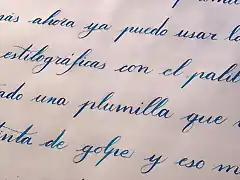 más ahora ya puedo usar la
estilográficas con el palil
ado una plumilla que
tinta de golpe y eso m